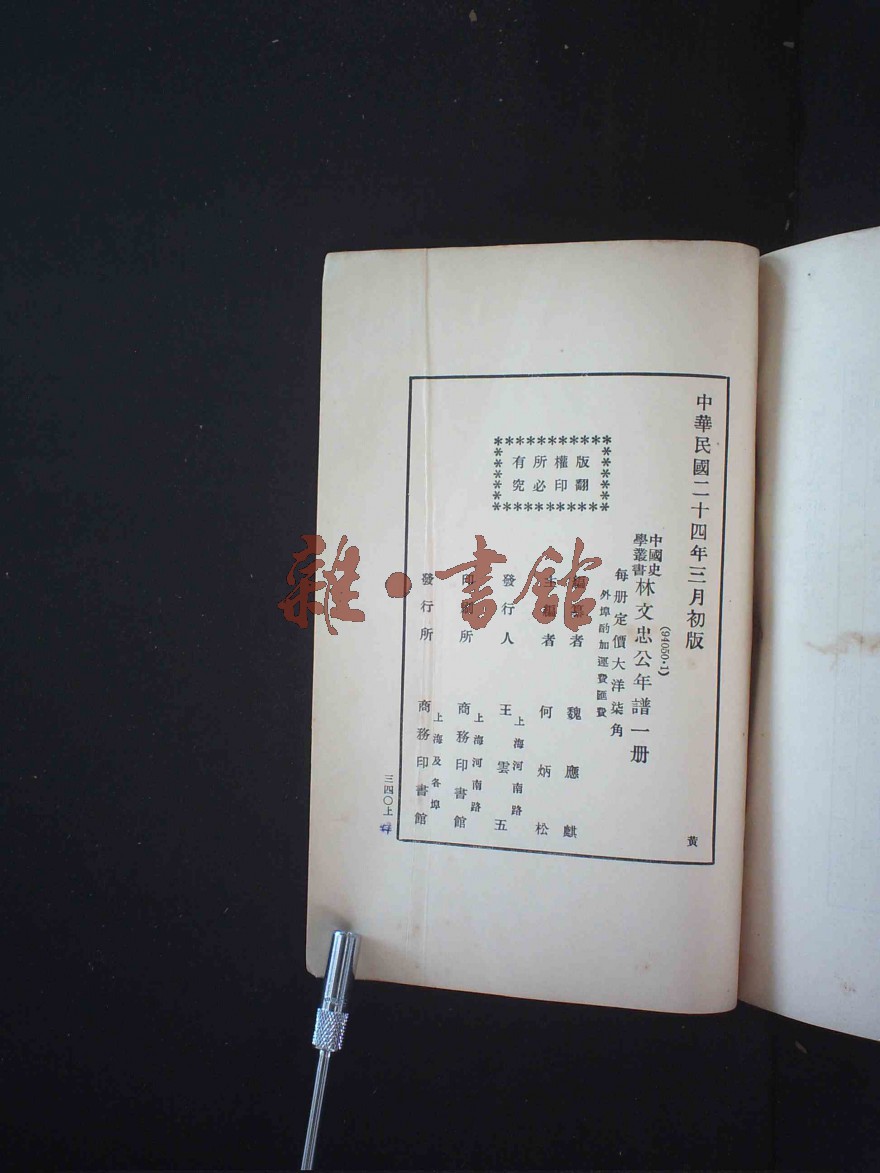 中華民國二十四年三月初版
(94050·1)
中國史學叢書 林文忠公年譜一册
每册定價大洋柒角
外埠酌加運費匯費
版權所有
翻印必究
編纂者 魏應麒
主編者 何炳松
發行人 王雲五
上海河南路
印刷所 商務印書館
上海河南路
發行所 商務印書館
上海及各埠
黃
三四〇上
雜·書館